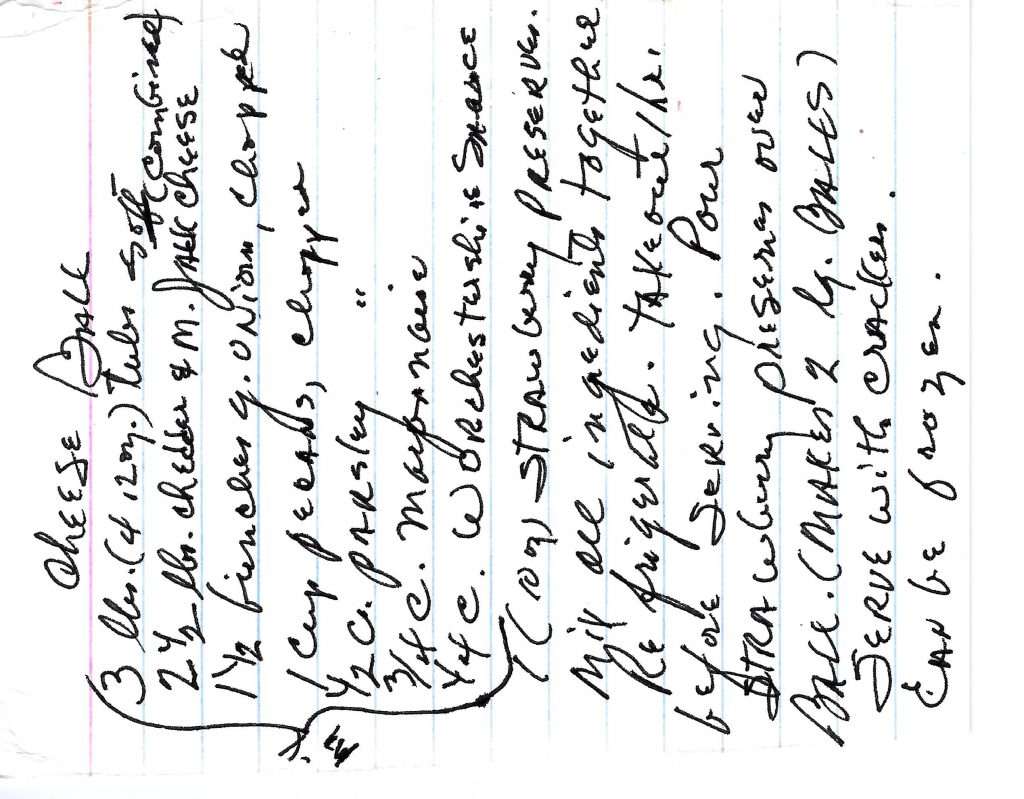 Cheese Ball
3 lbs. (4 12oz.) tubs soft combined
2 1/2 lbs. cheddar & M. Jack Cheese
1 1/2 bunches g. onion, chopped
1 cup pecans, chopped
1/2 c. parsley "
3/4 c. mayonnaise
1/4 c. Worchestershire Sauce
1 (10 oz) Strawberry Preserves.
Mix all ingredients together
Refrigerate. Take out 1 hr.
before serving. Pour
Strawberry preserves over
Ball. (Makes 2 lg. Balls)
Serve with crackers.
Can be frozen.